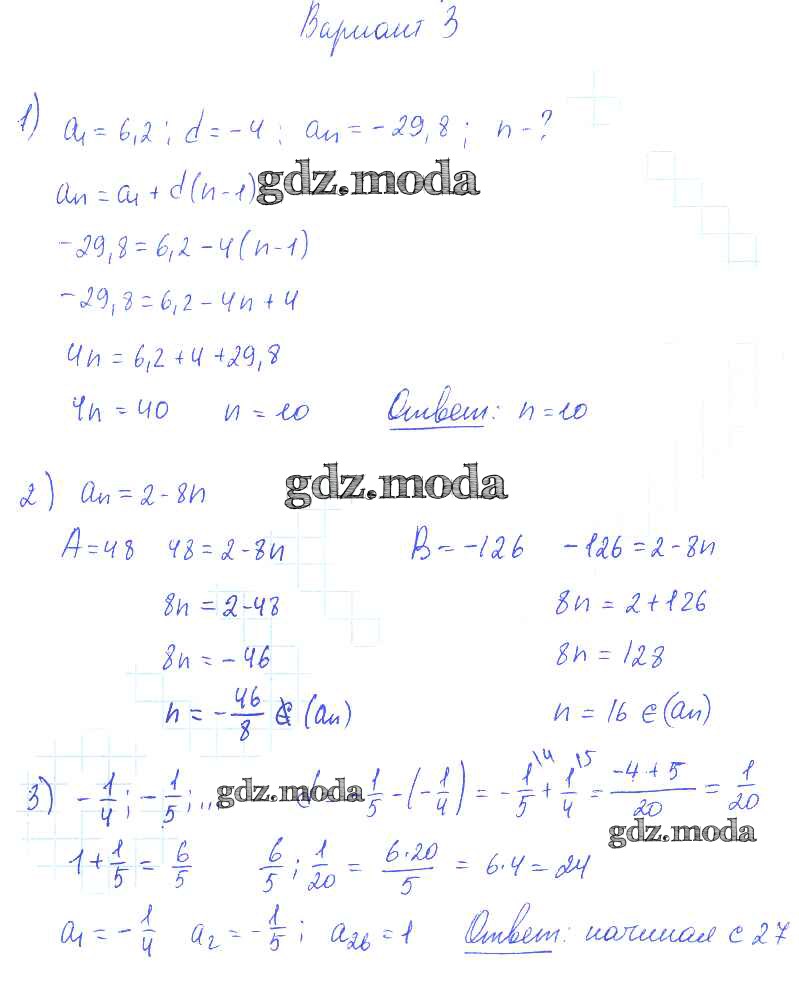 Вариант 3
1) a₁ = 6,2 ; d = -4 ; aₙ = -29,8 ; n - ?
aₙ = a₁ + d(n-1) gdz.moda
-29,8 = 6,2 - 4(n-1)
-29,8 = 6,2 - 4n + 4
4n = 6,2 + 4 + 29,8
4n = 40 n = 10 Ответ: n = 10
2) aₙ = 2 - 8n gdz.moda
A = 48 48 = 2 - 8n B = -126 -126 = 2 - 8n
8n = 2 - 48 8n = 2 + 126
8n = -46 8n = 128
n = -46/8 ∉ (aₙ) n = 16 ∈ (aₙ)
3) -1/4 ; -1/5 ; ... gdz.moda 1/5 - (-1/4) = -1/5\4 + 1/4\5 = (-4 + 5)/20 = 1/20
gdz.moda
1 + 1/5 = 6/5 6/5 : 1/20 = 6·20/5 = 6·4 = 24
a₁ = -1/4 a₂ = -1/5 ; a₂₆ = 1 Ответ: начиная с 27